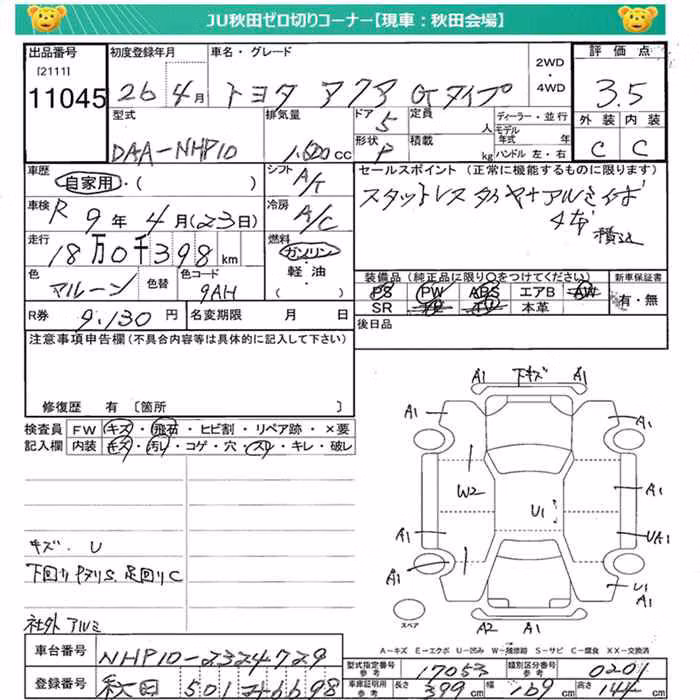 JU秋田ゼロ切りコーナー【現車：秋田会場】
出品番号 初度登録年月 車名・グレード 2WD・4WD 評価点
[2111]
11045 26 4月 トヨタ アクア Gタイプ 3.5
型式 排気量 ドア 5 定員 人 ディーラー・並行 外装 内装
モデル年式 年
DAA-NHP10 1,500cc 形状 P 積載 kg ハンドル 左・右 C C
車歴 自家用・( ) シフト A/T セールスポイント（正常に機能するものに限ります）
車検 R 9年 4月(23日) 冷房 A/C スタットレスタイヤ+アルミ
4本 積込
走行 18万0千398km 燃料 ガソリン・軽油・( )
色 マルーン 色替 色コード 9AH
装備品（純正品に限り○をつけてください） 新車保証書
PS PW ABS エアB AW 有・無
SR 本革
R券 9,130円 名変期限 月 日 後日品
注意事項申告欄（不具合内容等は具体的に記入して下さい）
修復歴 有〔箇所 〕
検査員記入欄 FW キズ・飛石・ヒビ割・リペア跡・×要
内装 キズ・汚レ・コゲ・穴・スレ・キレ・破レ
A1 下キズ A1
A1 A1
W2 U1 A1
A1 UA1
A1 U1
A1
A2 A1
スペア
キズ. U
下回りサビS. 足回りC
社外アルミ
A－キズ E－エクボ U－凹み W－補修跡 S－サビ C－腐食 XX－交換済
車台番号 NHP10-2324729
型式指定番号 参考 17053 類別区分番号 参考 0201
登録番号 秋田 501 6698
車庫証明用 参考 長さ 399cm 幅 169cm 高さ 144cm